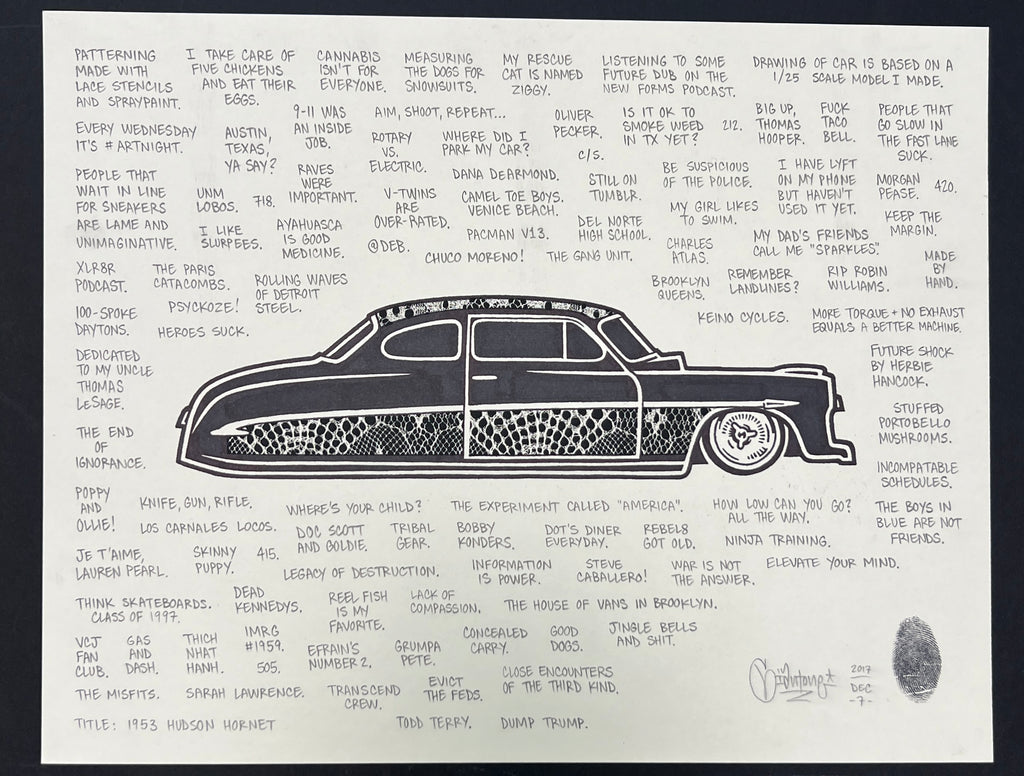 PATTERNING
MADE WITH
LACE STENCILS
AND SPRAYPAINT.
I TAKE CARE OF
FIVE CHICKENS
AND EAT THEIR
EGGS.
CANNABIS
ISN'T FOR
EVERYONE.
MEASURING
THE DOGS FOR
SNOWSUITS.
MY RESCUE
CAT IS NAMED
ZIGGY.
LISTENING TO SOME
FUTURE DUB ON THE
NEW FORMS PODCAST.
DRAWING OF CAR IS BASED ON A
1/25 SCALE MODEL I MADE.
EVERY WEDNESDAY
IT'S #ARTNIGHT.
AUSTIN,
TEXAS,
YA SAY?
9-11 WAS
AN INSIDE
JOB.
AIM, SHOOT, REPEAT...
ROTARY
VS.
ELECTRIC.
WHERE DID I
PARK MY CAR?
OLIVER
PECKER.
C/S.
IS IT OK TO
SMOKE WEED
IN TX YET?
212.
BIG UP,
THOMAS
HOOPER.
FUCK
TACO
BELL.
PEOPLE THAT
GO SLOW IN
THE FAST LANE
SUCK.
PEOPLE THAT
WAIT IN LINE
FOR SNEAKERS
ARE LAME AND
UNIMAGINATIVE.
UNM
LOBOS.
718.
RAVES
WERE
IMPORTANT.
DANA DEARMOND.
V-TWINS
ARE
OVER-RATED.
CAMEL TOE BOYS.
VENICE BEACH.
STILL ON
TUMBLR.
BE SUSPICIOUS
OF THE POLICE.
I HAVE LYFT
ON MY PHONE
BUT HAVEN'T
USED IT YET.
MORGAN
PEASE.
420.
I LIKE
SLURPEES.
AYAHUASCA
IS GOOD
MEDICINE.
@DEB.
PACMAN V13.
DEL NORTE
HIGH SCHOOL.
MY GIRL LIKES
TO SWIM.
KEEP THE
MARGIN.
CHUCO MORENO!
THE GANG UNIT.
CHARLES
ATLAS.
MY DAD'S FRIENDS
CALL ME "SPARKLES".
MADE
BY
HAND.
XLR8R
PODCAST.
THE PARIS
CATACOMBS.
ROLLING WAVES
OF DETROIT
STEEL.
BROOKLYN
QUEENS.
REMEMBER
LANDLINES?
RIP ROBIN
WILLIAMS.
100-SPOKE
DAYTONS.
PSYCKOZE!
HEROES SUCK.
KEINO CYCLES.
MORE TORQUE + NO EXHAUST
EQUALS A BETTER MACHINE.
DEDICATED
TO MY UNCLE
THOMAS
LeSAGE.
FUTURE SHOCK
BY HERBIE
HANCOCK.
THE END
OF
IGNORANCE.
STUFFED
PORTOBELLO
MUSHROOMS.
INCOMPATABLE
SCHEDULES.
POPPY
AND
OLLIE!
KNIFE, GUN, RIFLE.
WHERE'S YOUR CHILD?
THE EXPERIMENT CALLED "AMERICA".
HOW LOW CAN YOU GO?
ALL THE WAY.
THE BOYS IN
BLUE ARE NOT
FRIENDS.
LOS CARNALES LOCOS.
DOC SCOTT
AND GOLDIE.
TRIBAL
GEAR.
BOBBY
KONDERS.
DOT'S DINER
EVERYDAY.
REBEL8
GOT OLD.
NINJA TRAINING.
JE T'AIME,
LAUREN PEARL.
SKINNY
PUPPY.
415.
LEGACY OF DESTRUCTION.
INFORMATION
IS POWER.
STEVE
CABALLERO!
WAR IS NOT
THE ANSWER.
ELEVATE YOUR MIND.
THINK SKATEBOARDS.
CLASS OF 1997.
DEAD
KENNEDYS.
REEL FISH
IS MY
FAVORITE.
LACK OF
COMPASSION.
THE HOUSE OF VANS IN BROOKLYN.
VCJ
FAN
CLUB.
GAS
AND
DASH.
THICH
NHAT
HANH.
IMRG
#1959.
505.
EFRAIN'S
NUMBER 2.
GRUMPA
PETE.
CONCEALED
CARRY.
GOOD
DOGS.
JINGLE BELLS
AND SHIT.
CLOSE ENCOUNTERS
OF THE THIRD KIND.
THE MISFITS.
SARAH LAWRENCE.
TRANSCEND
CREW.
EVICT
THE FEDS.
2017
DEC
-7-
TITLE: 1953 HUDSON HORNET
TODD TERRY.
DUMP TRUMP.